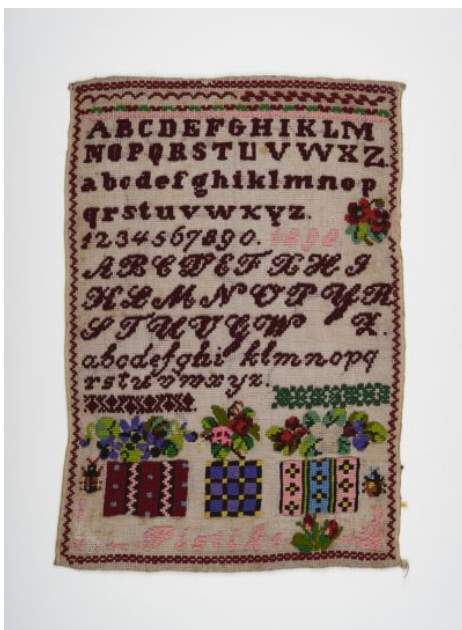 ABCDEFGHIKLM
NOPQRSTUVWXZ
abcdefghiklmnop
qrstuvwxyz.
1234567890.
ABCDEFGHI
KLMNOPQR
STUVW Z.
abcdefghi klmnopq
rstuvwxyz.